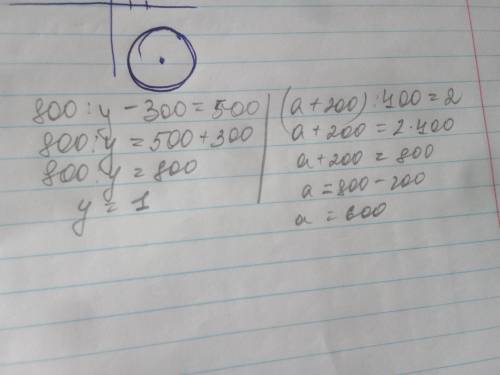 800 : y - 300 = 500
800 : y = 500 + 300
800 : y = 800
y = 1
(a + 200) : 400 = 2
a + 200 = 2 · 400
a + 200 = 800
a = 800 - 200
a = 600